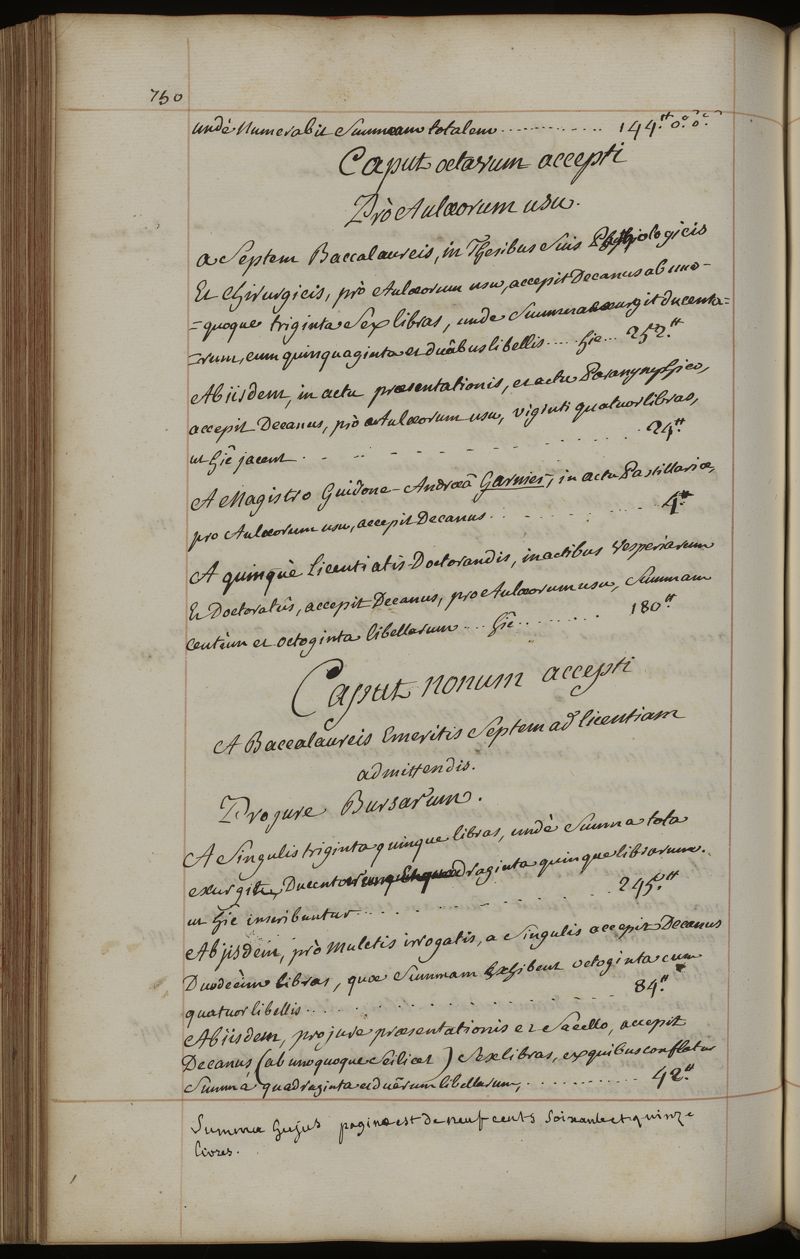 750
undè numerabit Summam totalem ............ 144.tt 0.s 0.d
Caput octavum accepti
Prò Aulæorum usu.
a Septem Baccalaureis, in Thesibus Suis Physiologicis
Et Chirurgicis, prò Aulæorum usu, accepit Decanus ab uno-
=quoque triginta Sex libras, unde Summa exurgit ducenta=
=rum, cum quinquaginta et duâbus libellis .... hîc ... 252.tt
Ab jisdem, in actu præsentationis, et actu Paranymphico,
accepit Decanus, prò Aulæorum usu, viginti quatuor libras,
ut hîc jacent . . . . . . . . . . 24.tt
A Magistro Guidone-Andreâ Garnier, in actu Pastillariæ,
pro Aulæorum usu, accepit Decanus . . . . . . . 4.tt
A quinquè Licentiatis-Doctorandis, in actibus Vesperiarum
Et Doctoratûs, accepit Decanus, pro Aulæorum usu, Summam
Centùm et octoginta libellarum ... hîc ........ 180.tt
Caput nonum accepti
A Baccalaureis Emeritis Septem ad licentiam
admittendis.
Pro jure Bursarum.
A Singulis triginta quinque libras, undè Summa tota
exurgit, Ducentarum quadraginta quinque librarum.
ut hîc inscribuntur . . . . . . . . . . 245.tt
Ab jisdem, prò mulctis irrogatis, a Singulis accepit Decanus
Duodecim libras, quæ Summam Exhibent octoginta cum
quatuor libellis . . . . . . . . . . . 84.tt
Ab jisdem, pro jure præsentationis et Sacello, accepit
Decanus (ab unoquoque Scilicet) Sex libras, ex quibus conflatur
Summa quadraginta et duârum libellarum, . . . . . . 42.tt
Summa hujus paginæ est de neuf cents soixante et quinze
livres.